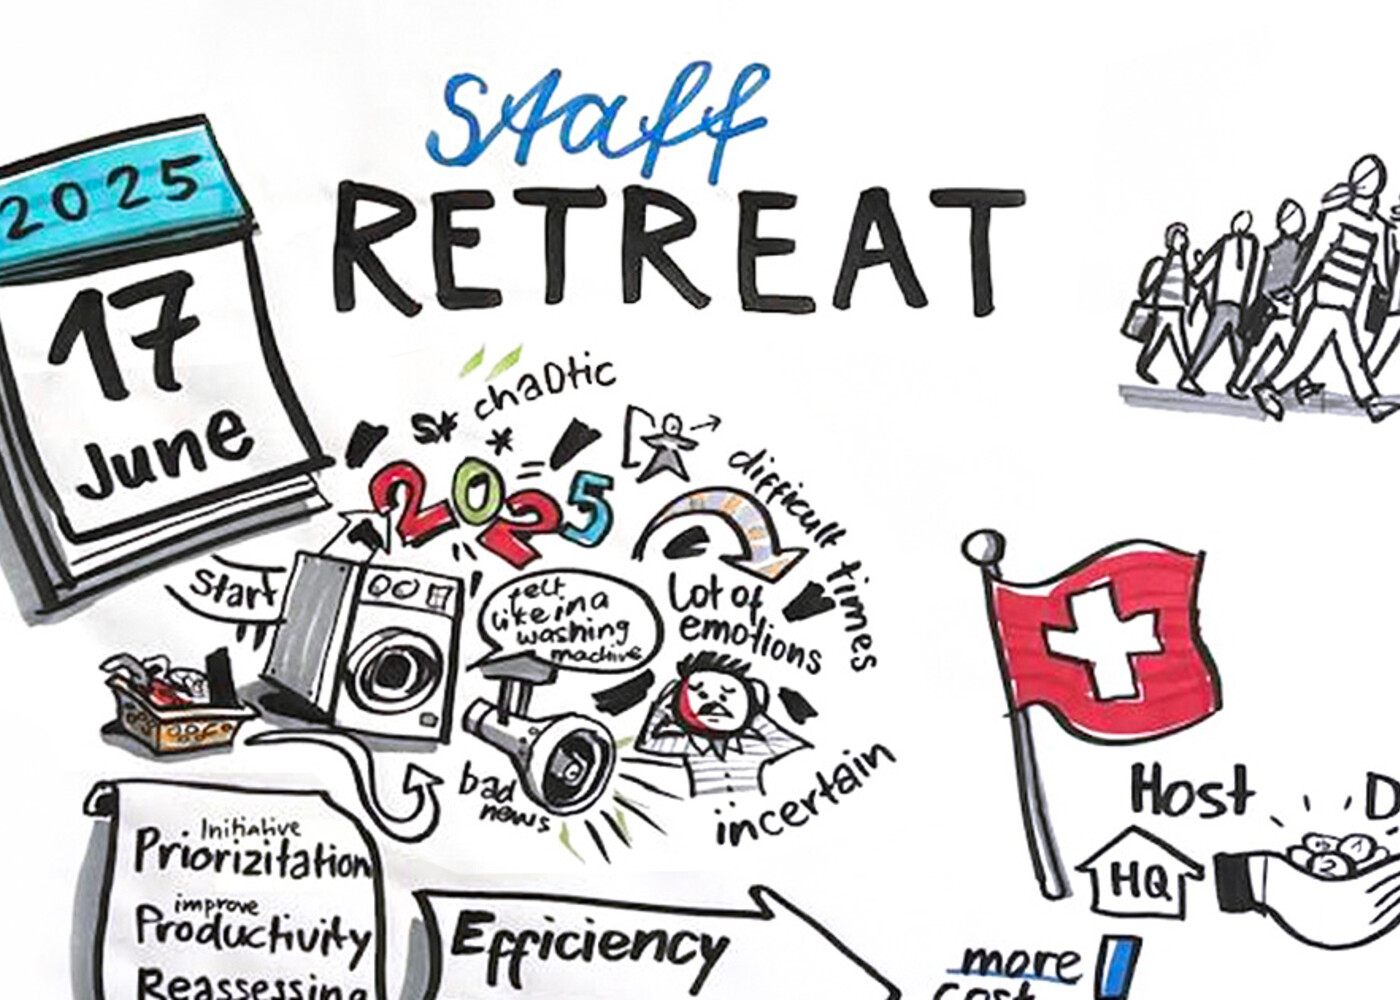 Staff
RETREAT
2025
17
June
chaotic
S*
*
2025
difficult times
Start
felt
like in a
washing
machine
Lot of
emotions
bad
news
incertain
Initiative
Priorizitation
improve
Productivity
Reassessing
Efficiency
Host
D
HQ
2
more
cost